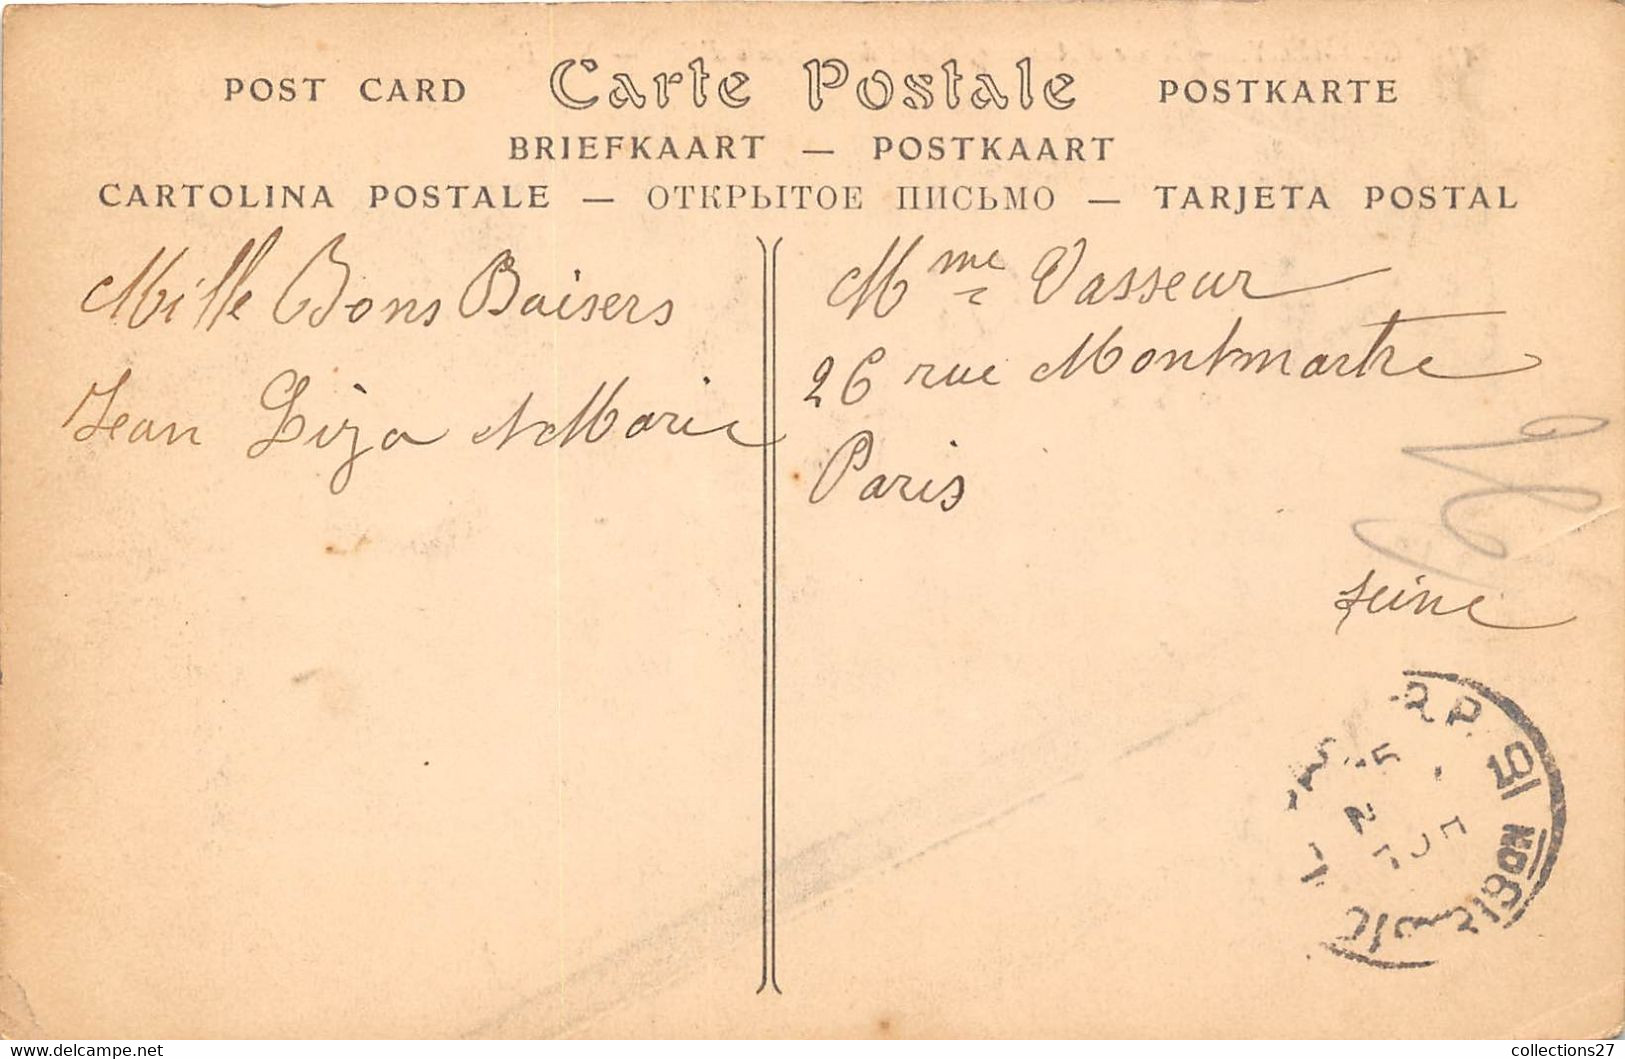 POST CARD Carte Postale POSTKARTE
BRIEFKAART — POSTKAART
CARTOLINA POSTALE — ОТКРЫТОЕ ПИСЬМО — TARJETA POSTAL
Mille Bons Baisers
Jean Liza et Marie
Mme Vasseur
26 rue Montmartre
Paris
Seine
collections27